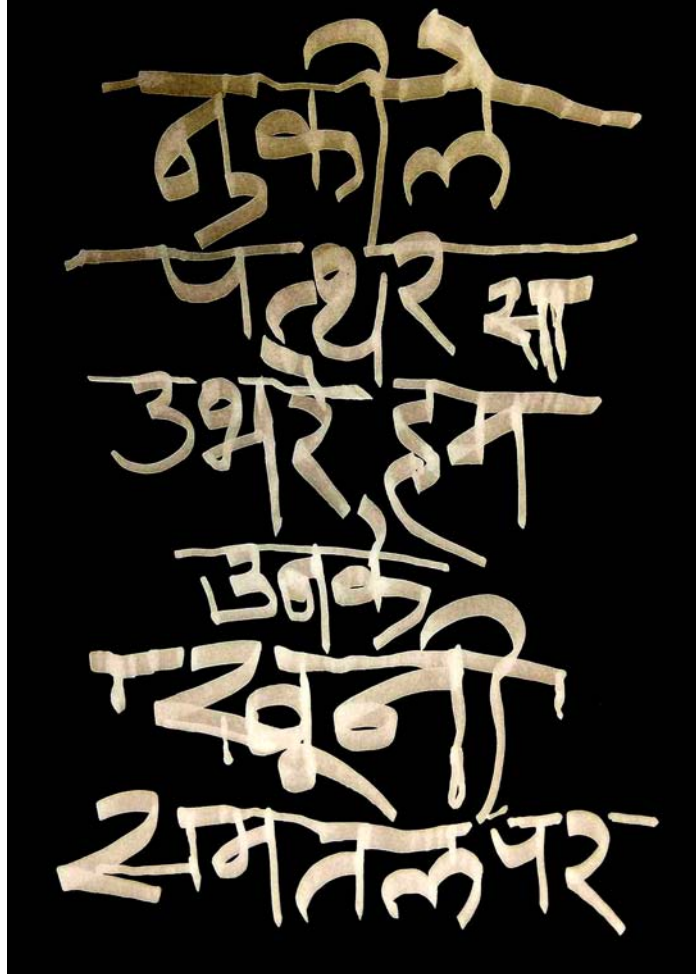 नुकीले
पत्थर सा
उभरे हम
उनके
खूनी
समतल पर